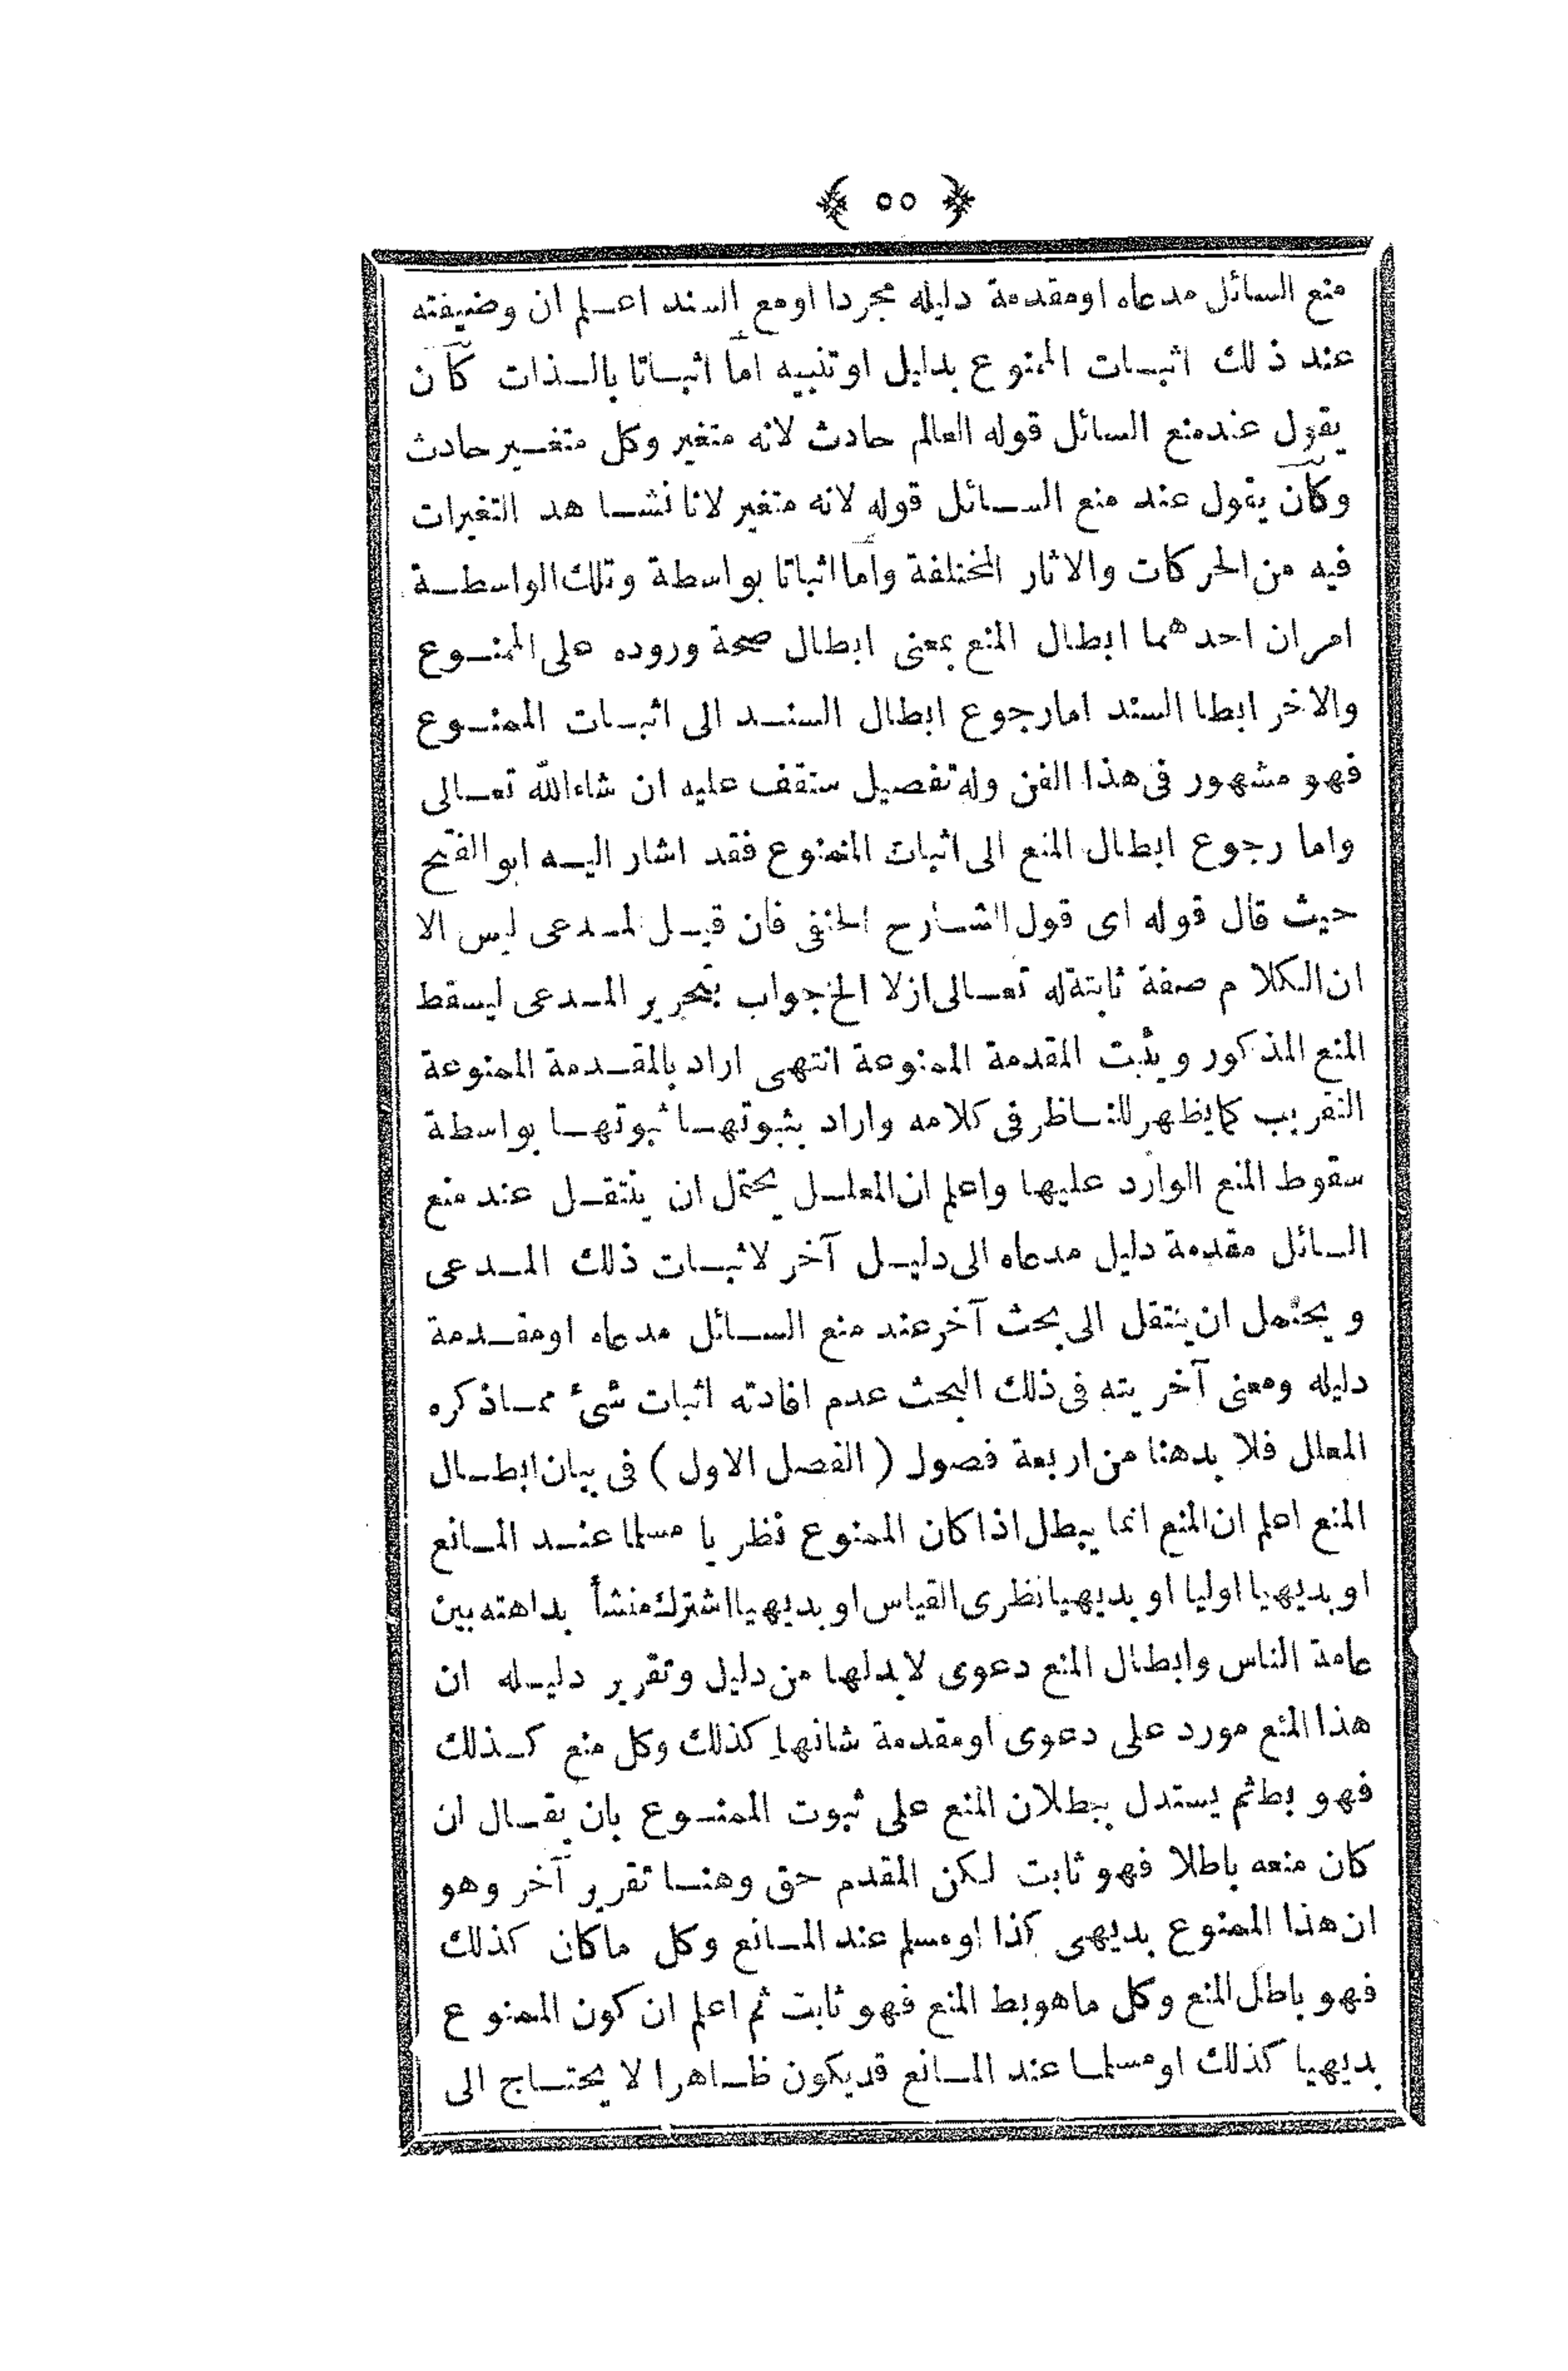 ﴿ ٥٥ ﴾
منع السائل مدعاه او مقدمة دليله مجردا او مع السند اعلم ان وضيفته
عند ذلك اثبات الممنوع بدليل او تنبيه اما اثباتا بالذات كأن
يقول عند منع السائل قوله العالم حادث لانه متغير وكل متغير حادث
وكأن يقول عند منع السائل قوله لانه متغير لانا نشاهد التغيرات
فيه من الحركات والاثار المختلفة واما اثباتا بواسطة وتلك الواسطة
امران احدهما ابطال المنع بمعنى ابطال صحة وروده على الممنوع
والاخر ابطا السند اما رجوع ابطال السند الى اثبات الممنوع
فهو مشهور فى هذا الفن وله تفصيل ستقف عليه ان شاء الله تعالى
واما رجوع ابطال المنع الى اثبات الممنوع فقد اشار اليه ابو الفتح
حيث قال قوله اى قول الشارح الحنفى فان قيل المدعى ليس الا
ان الكلام صفة ثابتة له تعالى ازلا الخ جواب بتحرير المدعى ليسقط
المنع المذكور ويثبت المقدمة الممنوعة انتهى اراد بالمقدمة الممنوعة
التقريب كما يظهر للناظر فى كلامه واراد بثبوتها ثبوتها بواسطة
سقوط المنع الوارد عليها واعلم ان المعلل يحتمل ان ينتقل عند منع
السائل مقدمة دليل مدعاه الى دليل آخر لاثبات ذلك المدعى
ويحتمل ان ينتقل الى بحث آخر عند منع السائل مدعاه او مقدمة
دليله ومعنى آخريته فى ذلك البحث عدم افادته اثبات شئ مما ذكره
المعلل فلا بد هنا من اربعة فصول ( الفصل الاول ) فى بيان ابطال
المنع اعلم ان المنع انما يبطل اذا كان الممنوع نظريا مسلما عند المانع
او بديهيا اوليا او بديهيا نظرى القياس او بديهيا اشترك منشأ بداهته بين
عامة الناس وابطال المنع دعوى لا بد لها من دليل وتقرير دليله ان
هذا المنع مورد على دعوى او مقدمة شانها كذلك وكل منع كذلك
فهو بط ثم يستدل ببطلان المنع على ثبوت الممنوع بان يقال ان
كان منعه باطلا فهو ثابت لكن المقدم حق وهنا تقرير آخر وهو
ان هذا الممنوع بديهى كذا او مسلم عند المانع وكل ما كان كذلك
فهو باطل المنع وكل ما هو بط المنع فهو ثابت ثم اعلم ان كون الممنوع
بديهيا كذلك او مسلما عند المانع قد يكون ظاهرا لا يحتاج الى